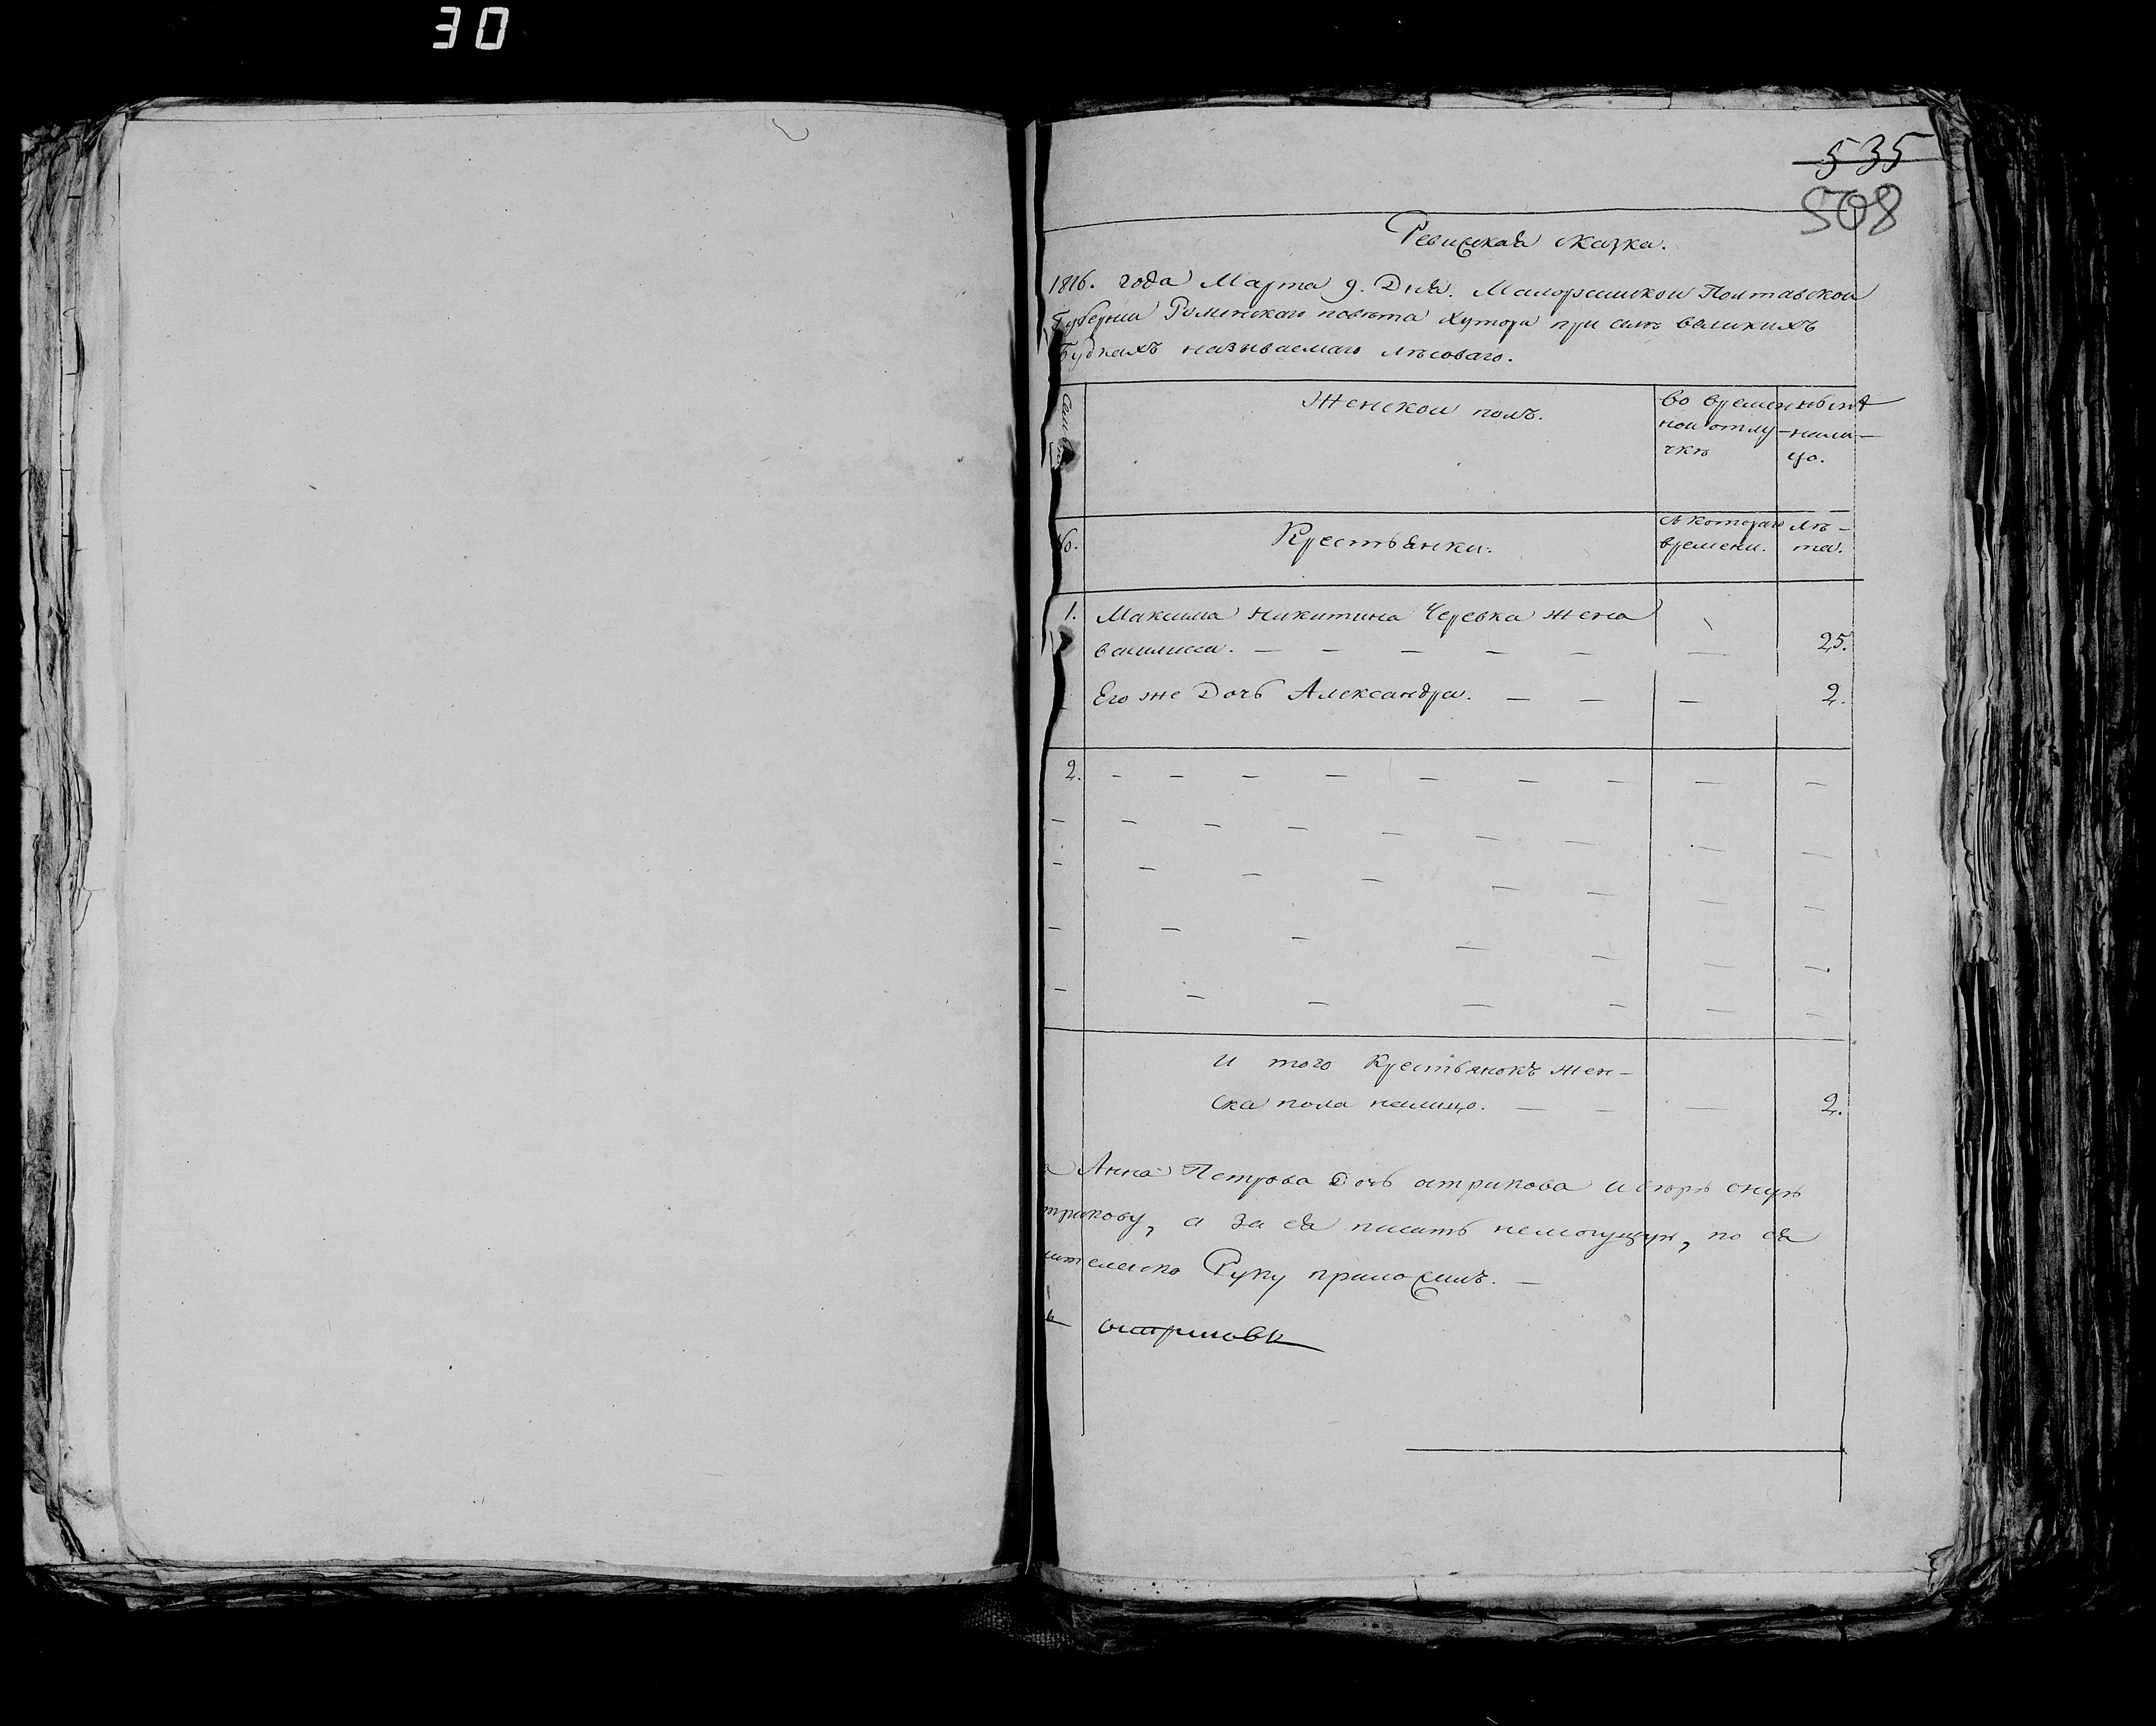 30
535
508
Ревиская сказка.
1816. года Марта 9. Дня. Малороссискои Полтавскои
Губернии Роменского повета Хутора при селе великихъ
Будкахъ называемаго лѣсоваго.
Женскои полъ.
во времен
нои отлу-
чкѣ
нынѣ
нали-
цо.
No.
Крестьянки.
съ котораго
времени.
лѣ-
та.
1. Максима никитина Черевка жена
василиса. — — — — — — 25.
Его же Дочь Александра. — — — 2.
2. — — — — — — — — —
И того Крестьянокъ жен-
ска пола налицо. — — — 2.
Анна Петрова Дочь острикова
трикову, а за ея писать немогущую, по ея
Руку приложилъ. —